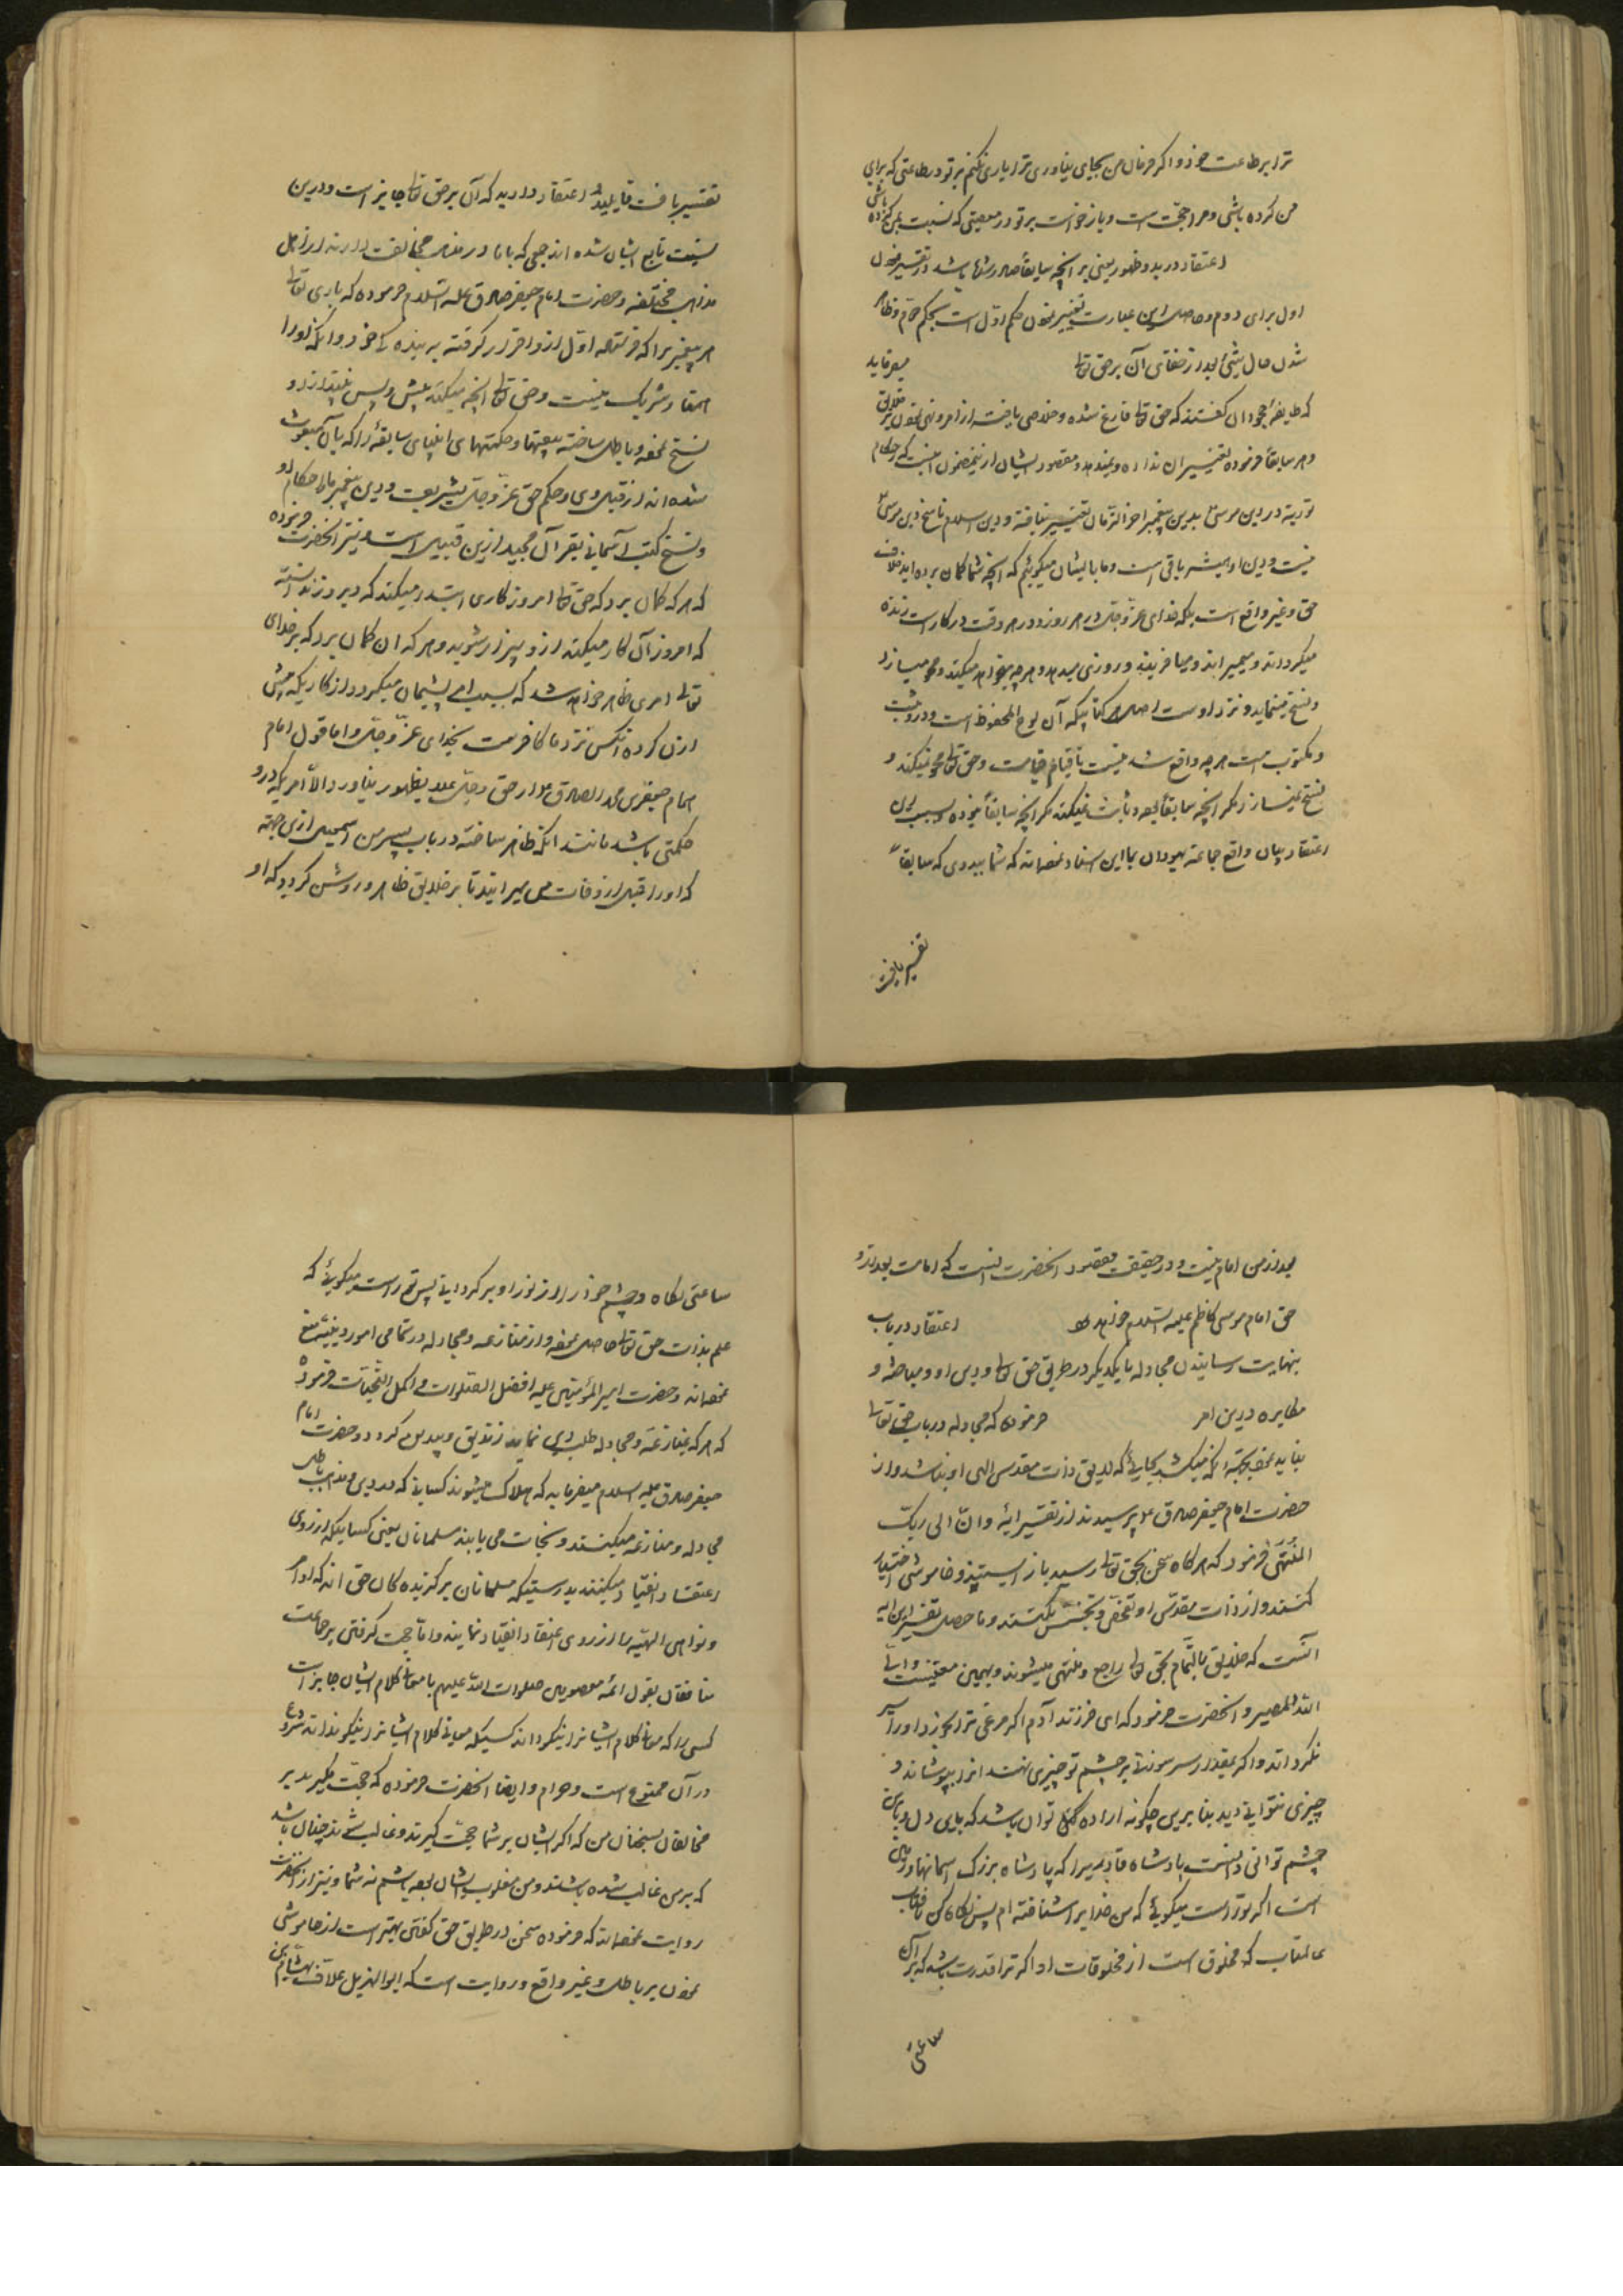 ترا بر طاعت خود و اگر فرمان من بجای نیاوردی ترا یاری نکنم بر تو در طاعتی که برای
من کرده باشی و مرا حجّت است و باز خواست بر تو در معصیتی که نسبت بمن کرده باشی
اعتقاد در بدو ظهور یعنی بر آنچه سابقاً صادر شده باشد و تفسیر نمودن
اول برای دوم و حاصل این عبارت تغییر نمودن حکم اوّل است بحکم دوّم و ظاهر
شدن حال شیئ بعد از خفای آن بر حق تعالی میفرماید
که طایفۀ جهودان گفتند که حق تعالی فارغ شده و خلاصی یافته از امر و نهی نمودن بر خلایق
و هر سابقاً فرموده تغییر آن نداده و نمیدهد و مقصود ایشان ازین مضمون اینست که احکام
توریة و دین موسیٰ بدین پیغمبر آخر الزّمان تغییر نیافته و دین اسلام ناسخ دین موسیٰ
نیست و دین او همیشه باقی است و ما با ایشان میگوئیم که آنچه شما گمان برده اید خلاف
حق و غیر واقع است بلکه خدای عزّ و جلّ در هر روز و در هر وقت در کار است زنده
میگرداند و میمیراند و میآفریند و روزی میدهد و هر چه میخواهد میکند و محو میسازد
و نسخ مینماید و نزد اوست اصل هر کتابیکه آن لوح المحفوظ است و در او ثبت
و مکتوب است هر چه واقع شدنیست تا قیام قیامت و حق تعالی محو نمیکند و
نسخ نمیسازد مگر آنچه سابقاً بوده و ثابت نمیکند مگر آنچه سابقاً نبوده و بسبب این
اعتقاد و بیان واقع جماعة یهودان بما این اسناد نموده اند که شما ببدوی که سابقاً
تفسیر یافت
تفسیر یافت قایلید و اعتقاد دارید که آن بر حق تعالی جایز است و درین
نسبت تابع ایشان شده اند جمعی که با ما در مذهب مخالفت دارند از اهل
مذاهب مختلفه و حضرت امام جعفر صادق علیه السّلام فرموده که باری تعالی
هر پیغمبر برا که فرستاده اول از و اقرار گرفته به بندۀ خود و آنکه او را
همتا و شریک نیست و حق تعالی آنچه میکند پیش و پس نیفتد از و
نسخ نموده و باطل ساخته پیغمبرها و حکمتهای انبیای سابقه را که بآن مبعوث
شده اند از قبل وی و حکم حق عزّ و جلّ بشریعت و دین پیغمبر ما و احکام او
و نسخ کتب آسمانی بقرآن مجید ازین قبیل است و نیز آنحضرت فرموده
که هر که گمان برد که حق تعالی امروز کاری ابتدا میکند که دیروز ندانسته
که امروز آن کار میکند از و بیزار شوید و هر که آن گمان برد که بر خدای
تعالی امری ظاهر خواهد شد که بسبب آن پشیمان میگردد از کاریکه پیش
ازان کرده آنکس نزد ما کافر است بخدای عزّ و جلّ و اما قول امام
همام جعفر بن محمد الصادق ع از حق و جلّ علا بظهور نیاورد الّا امریکه در و
حکمتی باشد مانند آنکه ظاهر ساخته در باب پسر من اسمعیل ازین جهة
که او را قبل از وفات من میراند تا بر خلایق ظاهر و روشن گردد که او
بعد از من امام نیست و در حقیقت مقصود آنحضرت اینست که امامت بعد از و
حق امام موسی کاظم علیه السّلام خواهد بود اعتقاد در باب
بنهایت رسانیدن مجادله با یکدیگر در طریق حق تعالی و دین او و مباحثه و
مکابره درین امر فرموده که مجادله در باب حق تعالی
نباید نمود بجهة آنکه میکشد بجایی که لایق ذات مقدس الهی او نباشد و از
حضرت امام جعفر صادق ع پرسیدند از تفسیر آیۀ وانّ الی ربّک
المنتهی فرمود که هر گاه سخن بحق تعالی رسید باز ایستید و خاموشی اختیار
کنند و از ذات مقدّس او تفحّص و تجسّس نکنند و ما حصل تفسیر این آیه
آنست که خلایق بالتّمام بحق تعالی راجع و منتهی میشوند و بهمین معنیست و الی
اللّه المصیر و آنحضرت فرمود که ای فرزند آدم اگر مرغی ترا بخورد او را سیر
نگرداند و اگر بمقدار سر سوزنی بر چشم تو چیزی نهند آنرا بپوشاند و
چیزی نتوانی دید بنا برین چگونه اراده توان باشد که باین دل و باین
چشم توانی دانست پادشاه قادریرا که پادشاه بزرگ آسمانها و زمین
است اگر تو راست میگوئی که من خدایرا شناخته ام پس نگاه کن بآفتاب
عالمتاب که مخلوق است از مخلوقات او اگر ترا قدرت باشد که بر آن
ساعتی
ساعتی نگاه و چشم خود را از نور او پر گردانی پس تو راست میگوئی که
علم بذات حق تعالی حاصل نموده و از منازعه و مجادله در تمامی امور دینیّه منع
نموده اند و حضرت امیر المؤمنین علیه افضل الصّلوات و اکمل التّحیّات فرموده
که هر که بمنازعه و مجادله طلب دین نماید زندیق و بیدین گردد و حضرت امام
جعفر صادق علیه السلام میفرماید که هلاک میشوند کسانی که در دین و مذاهب باطل
مجادله و منازعه میکنند و نجات می یابند مسلمانان یعنی کسانیکه از روی
اعتقاد انقیاد میکنند بدرستیکه مسلمانان برگزیده گان حق اند که اوامر
و نواهی الهیّه را از روی اعتقاد انقیاد نمایند و امّا حجت گرفتن بر جماعت
منافقان بقول ائمّه معصومین صلوات اللّه علیهم با معانی کلام ایشان جایز است
کسی را که معانی کلام ایشانرا نیکو داند کسیکه معانی کلام ایشانرا نیکو نداند شروع
در آن ممنوع است و حرام و ایضا آنحضرت فرموده که حجّت بگیرید بر
مخالفان بسخنان من که اگر ایشان بر شما حجّت گیرند و غالب شوند چنان باشد
که بر من غالب شده باشند و من مغلوب ایشان بوده باشم نه شما و نیز از آنحضرت
روایت نموده اند که فرموده سخن در طریق حق گفتن بهتر است از خاموشی
نمودن بر باطل و غیر واقع و روایت است که ابوالهذیل علّاف بهشام بن